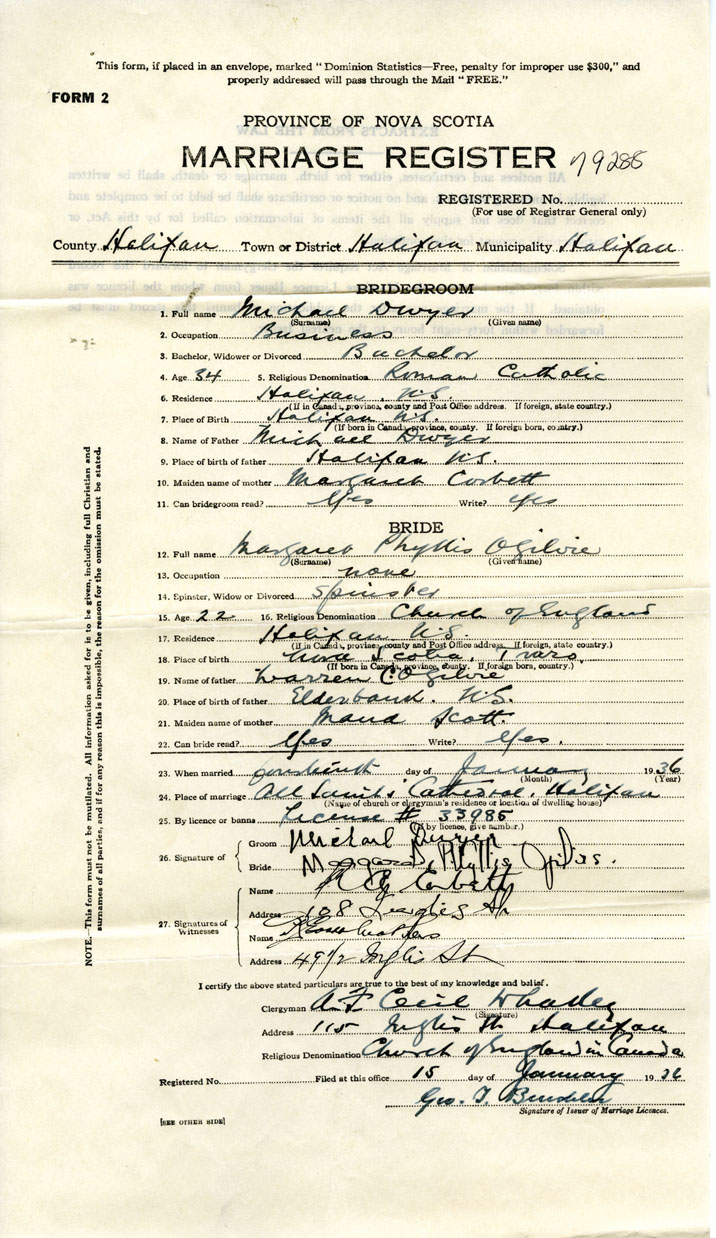 This form, if placed in an envelope, marked "Dominion Statistics—Free, penalty for improper use $300," and
properly addressed will pass through the Mail "FREE."
FORM 2
PROVINCE OF NOVA SCOTIA
MARRIAGE REGISTER 79288
REGISTERED No.
(For use of Registrar General only)
County Halifax Town or District Halifax Municipality Halifax
BRIDEGROOM
1. Full name Michael Dwyer
(Surname) (Given name)
2. Occupation Business
3. Bachelor, Widower or Divorced Bachelor
4. Age 34 5. Religious Denomination Roman Catholic
6. Residence Halifax, N.S.
(If in Canada, province, county and Post Office address. If foreign, state country.)
7. Place of Birth Halifax N.S.
(If born in Canada, province, county. If foreign born, country.)
8. Name of Father Michael Dwyer
9. Place of birth of father Halifax N.S.
10. Maiden name of mother Margaret Corbett
11. Can bridegroom read? Yes Write? Yes
BRIDE
12. Full name Margaret Phyllis Ogilvie
(Surname) (Given name)
13. Occupation none
14. Spinster, Widow or Divorced Spinster
15. Age 22 16. Religious Denomination Church of England
17. Residence Halifax N.S.
(If in Canada, province, county and Post Office address. If foreign, state country.)
18. Place of birth Nova Scotia, Truro
(If born in Canada, province, county. If foreign born, country.)
19. Name of father Warren C Ogilvie
20. Place of birth of father Elderbank. N.S.
21. Maiden name of mother Maud Scott.
22. Can bride read? Yes Write? Yes.
23. When married day of January 1936
(Month) (Year)
24. Place of marriage All Saints' Cathedral, Halifax
(Name of church or clergyman's residence or location of dwelling house)
25. By licence or banns License # 33985
(If by licence, give number.)
26. Signature of
Groom Michael Dwyer
Bride Margaret Phyllis Ogilvie.
27. Signatures of
Witnesses
Name Corbett
Address 108 St
Name
Address 49 1/2 Inglis St
I certify the above stated particulars are true to the best of my knowledge and belief.
Clergyman A F Cecil Whalley
(Signature)
Address 115 Inglis St Halifax
Religious Denomination Church of England in Canada
Registered No. Filed at this office 15 day of January 1936
Geo. T.
Signature of Issuer of Marriage Licences.
[SEE OTHER SIDE]
NOTE.—This form must not be mutilated. All information asked for is to be given, including full Christian and
surnames of all parties, and if for any reason this is impossible, the reason for the omission must be stated.